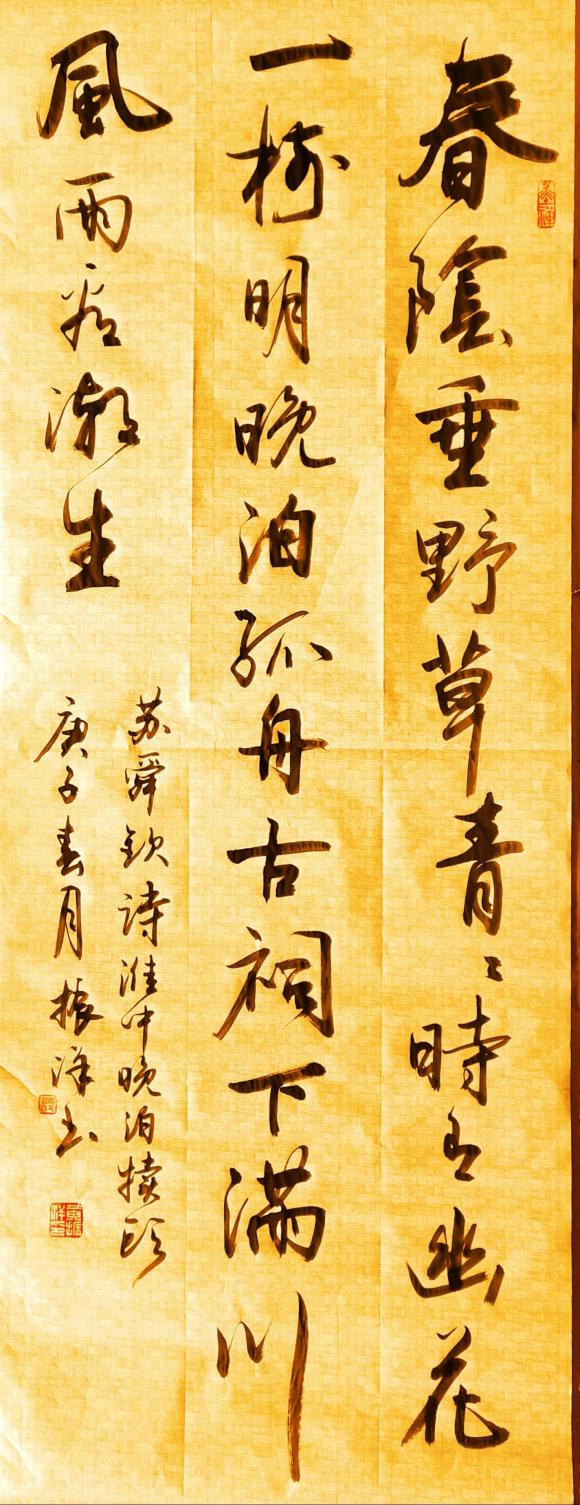 春陰垂野草青〻時有幽花
一樹明晚泊孤舟古祠下满川
風雨看潮生
苏舜钦诗淮中晚泊犊头
庚子春月振洋书